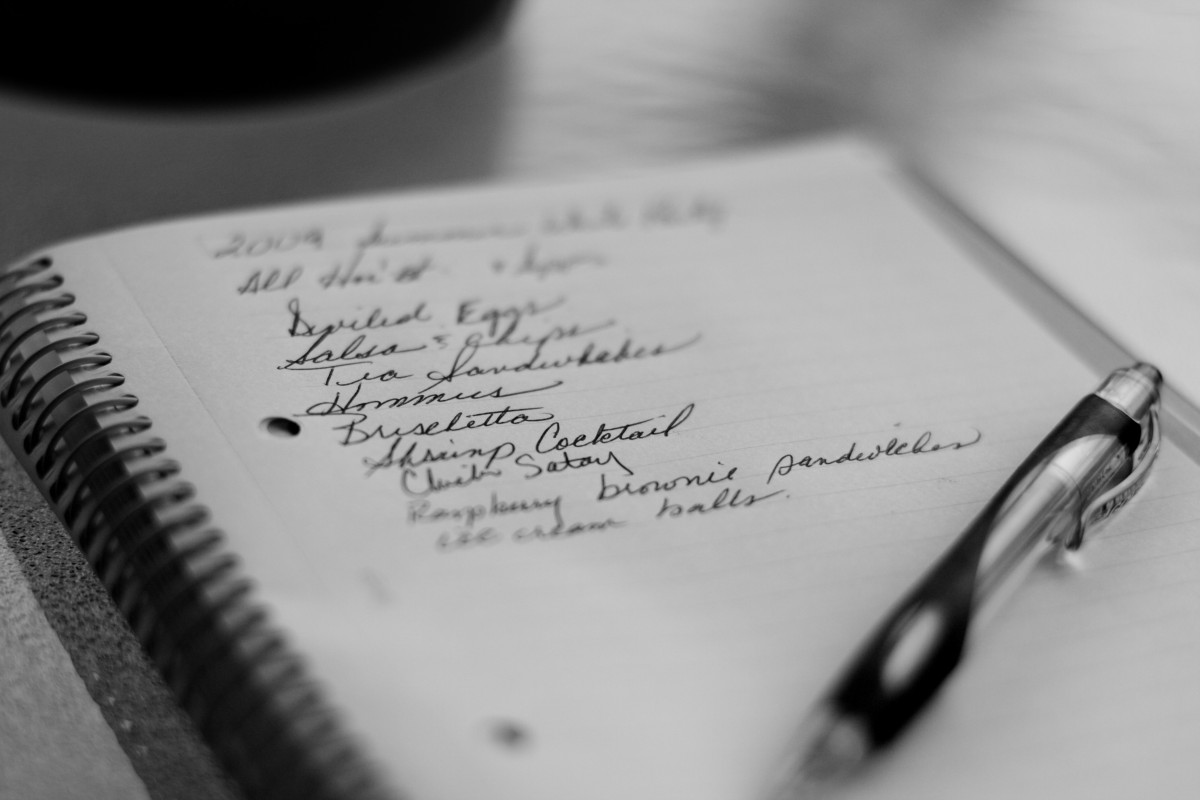 2009 Summer White Party
All Hor's
Deviled Eggs
Salsa & Chips
Tea Sandwhiches
Hommus
Bruschetta
Shrimp Cocktail
Satay
Raspberry brownie sandwiches
ice cream balls.